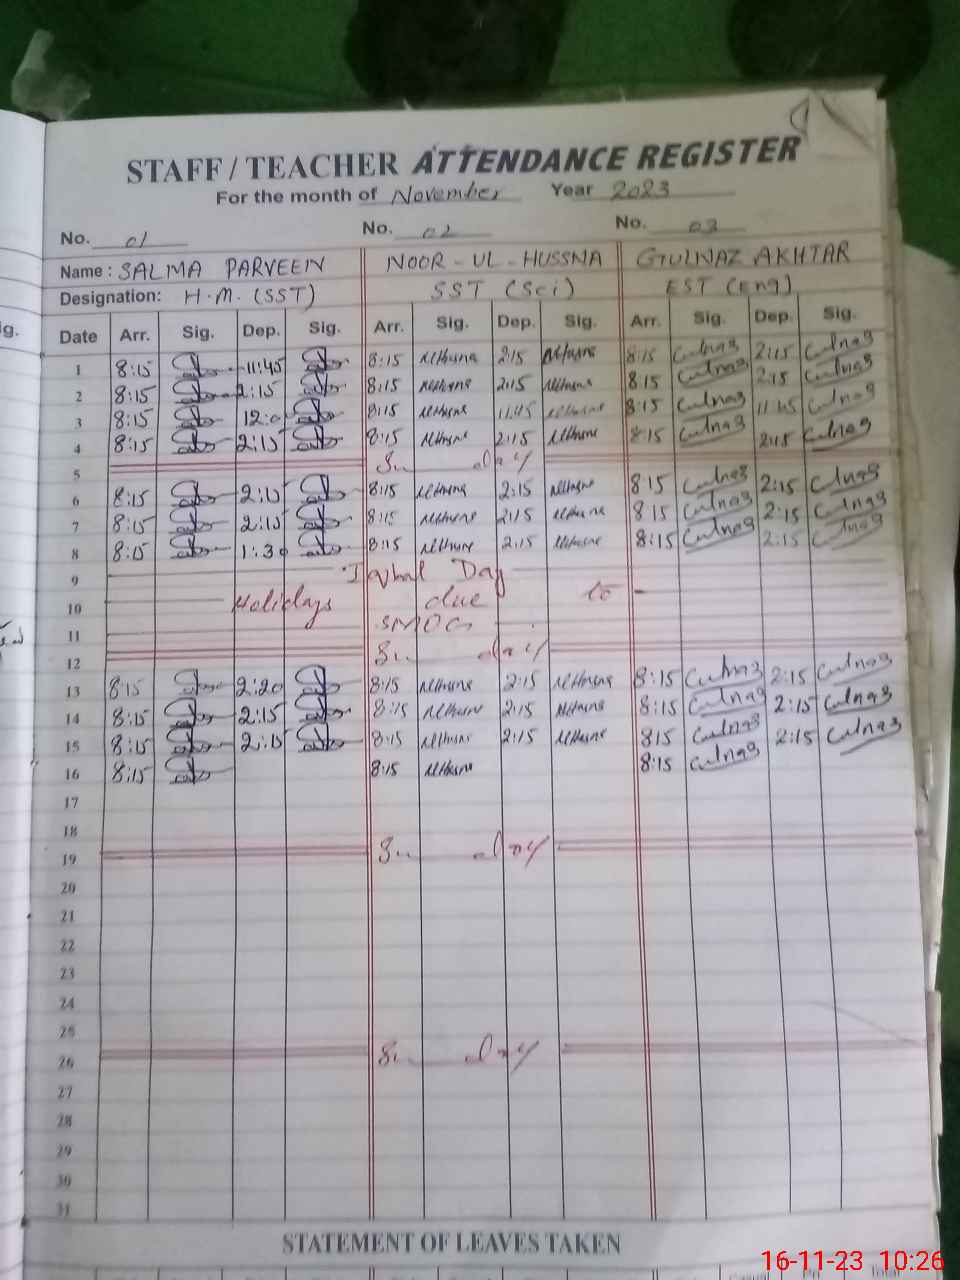 STAFF / TEACHER ATTENDANCE REGISTER
For the month of November Year 2023
No. 01 No. 02 No. 03
Name : SALMA PARVEEN NOOR-UL-HUSSNA GULNAZ AKHTAR
Designation: H.M. (SST) SST (Sci) EST (Eng)
Date Arr. Sig. Dep. Sig. Arr. Sig. Dep. Sig. Arr. Sig. Dep. Sig.
1 8:15 11:45 8:15 2:15 8:15 Gulnaz 2:15 Gulnaz
2 8:15 2:15 8:15 2:15 8:15 Gulnaz 2:15 Gulnaz
3 8:15 12:0 8:15 11:45 8:15 Gulnaz 11:45 Gulnaz
4 8:15 2:15 8:15 2:15 8:15 Gulnaz 2:15 Gulnaz
5 Sunday
6 8:15 2:15 8:15 2:15 8:15 Gulnaz 2:15 Gulnaz
7 8:15 2:15 8:15 2:15 8:15 Gulnaz 2:15 Gulnaz
8 8:15 1:30 8:15 2:15 8:15 Gulnaz 2:15 Gulnaz
9 Iqbal Day
10 Holidays due to
11 SMOG
12 Sunday
13 8:15 2:20 8:15 2:15 8:15 Gulnaz 2:15 Gulnaz
14 8:15 2:15 8:15 2:15 8:15 Gulnaz 2:15 Gulnaz
15 8:15 2:15 8:15 2:15 8:15 Gulnaz 2:15 Gulnaz
16 8:15 8:15 8:15 Gulnaz
17
18
19 Sunday
20
21
22
23
24
25
26 Sunday
27
28
29
30
31
STATEMENT OF LEAVES TAKEN
16-11-23 10:26